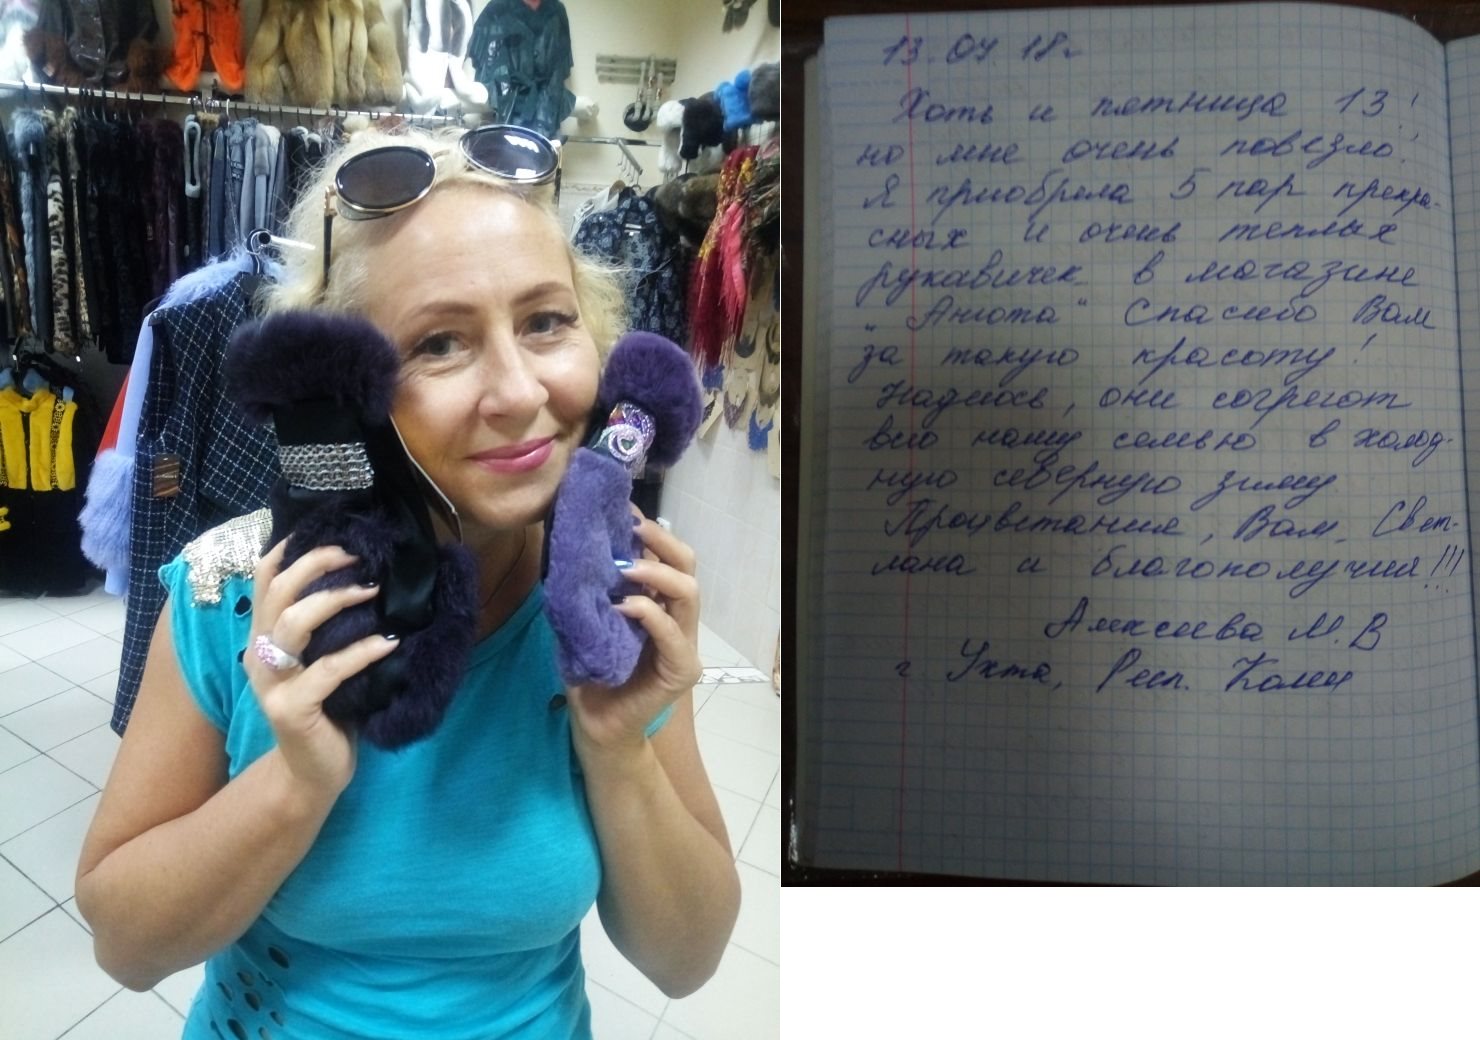 13.07.18г
Хоть и пятница 13!,
но мне очень повезло!
Я приобрела 5 пар прекра-
сных и очень теплых
рукавичек в магазине
"Анюта" Спасибо Вам
за такую красоту!
Надеюсь, они согреют
всю нашу семью в холод-
ную северную зиму.
Процветания, Вам, Свет-
лана и благополучия!!!
Алексеева М.В
г Ухта, Респ. Коми